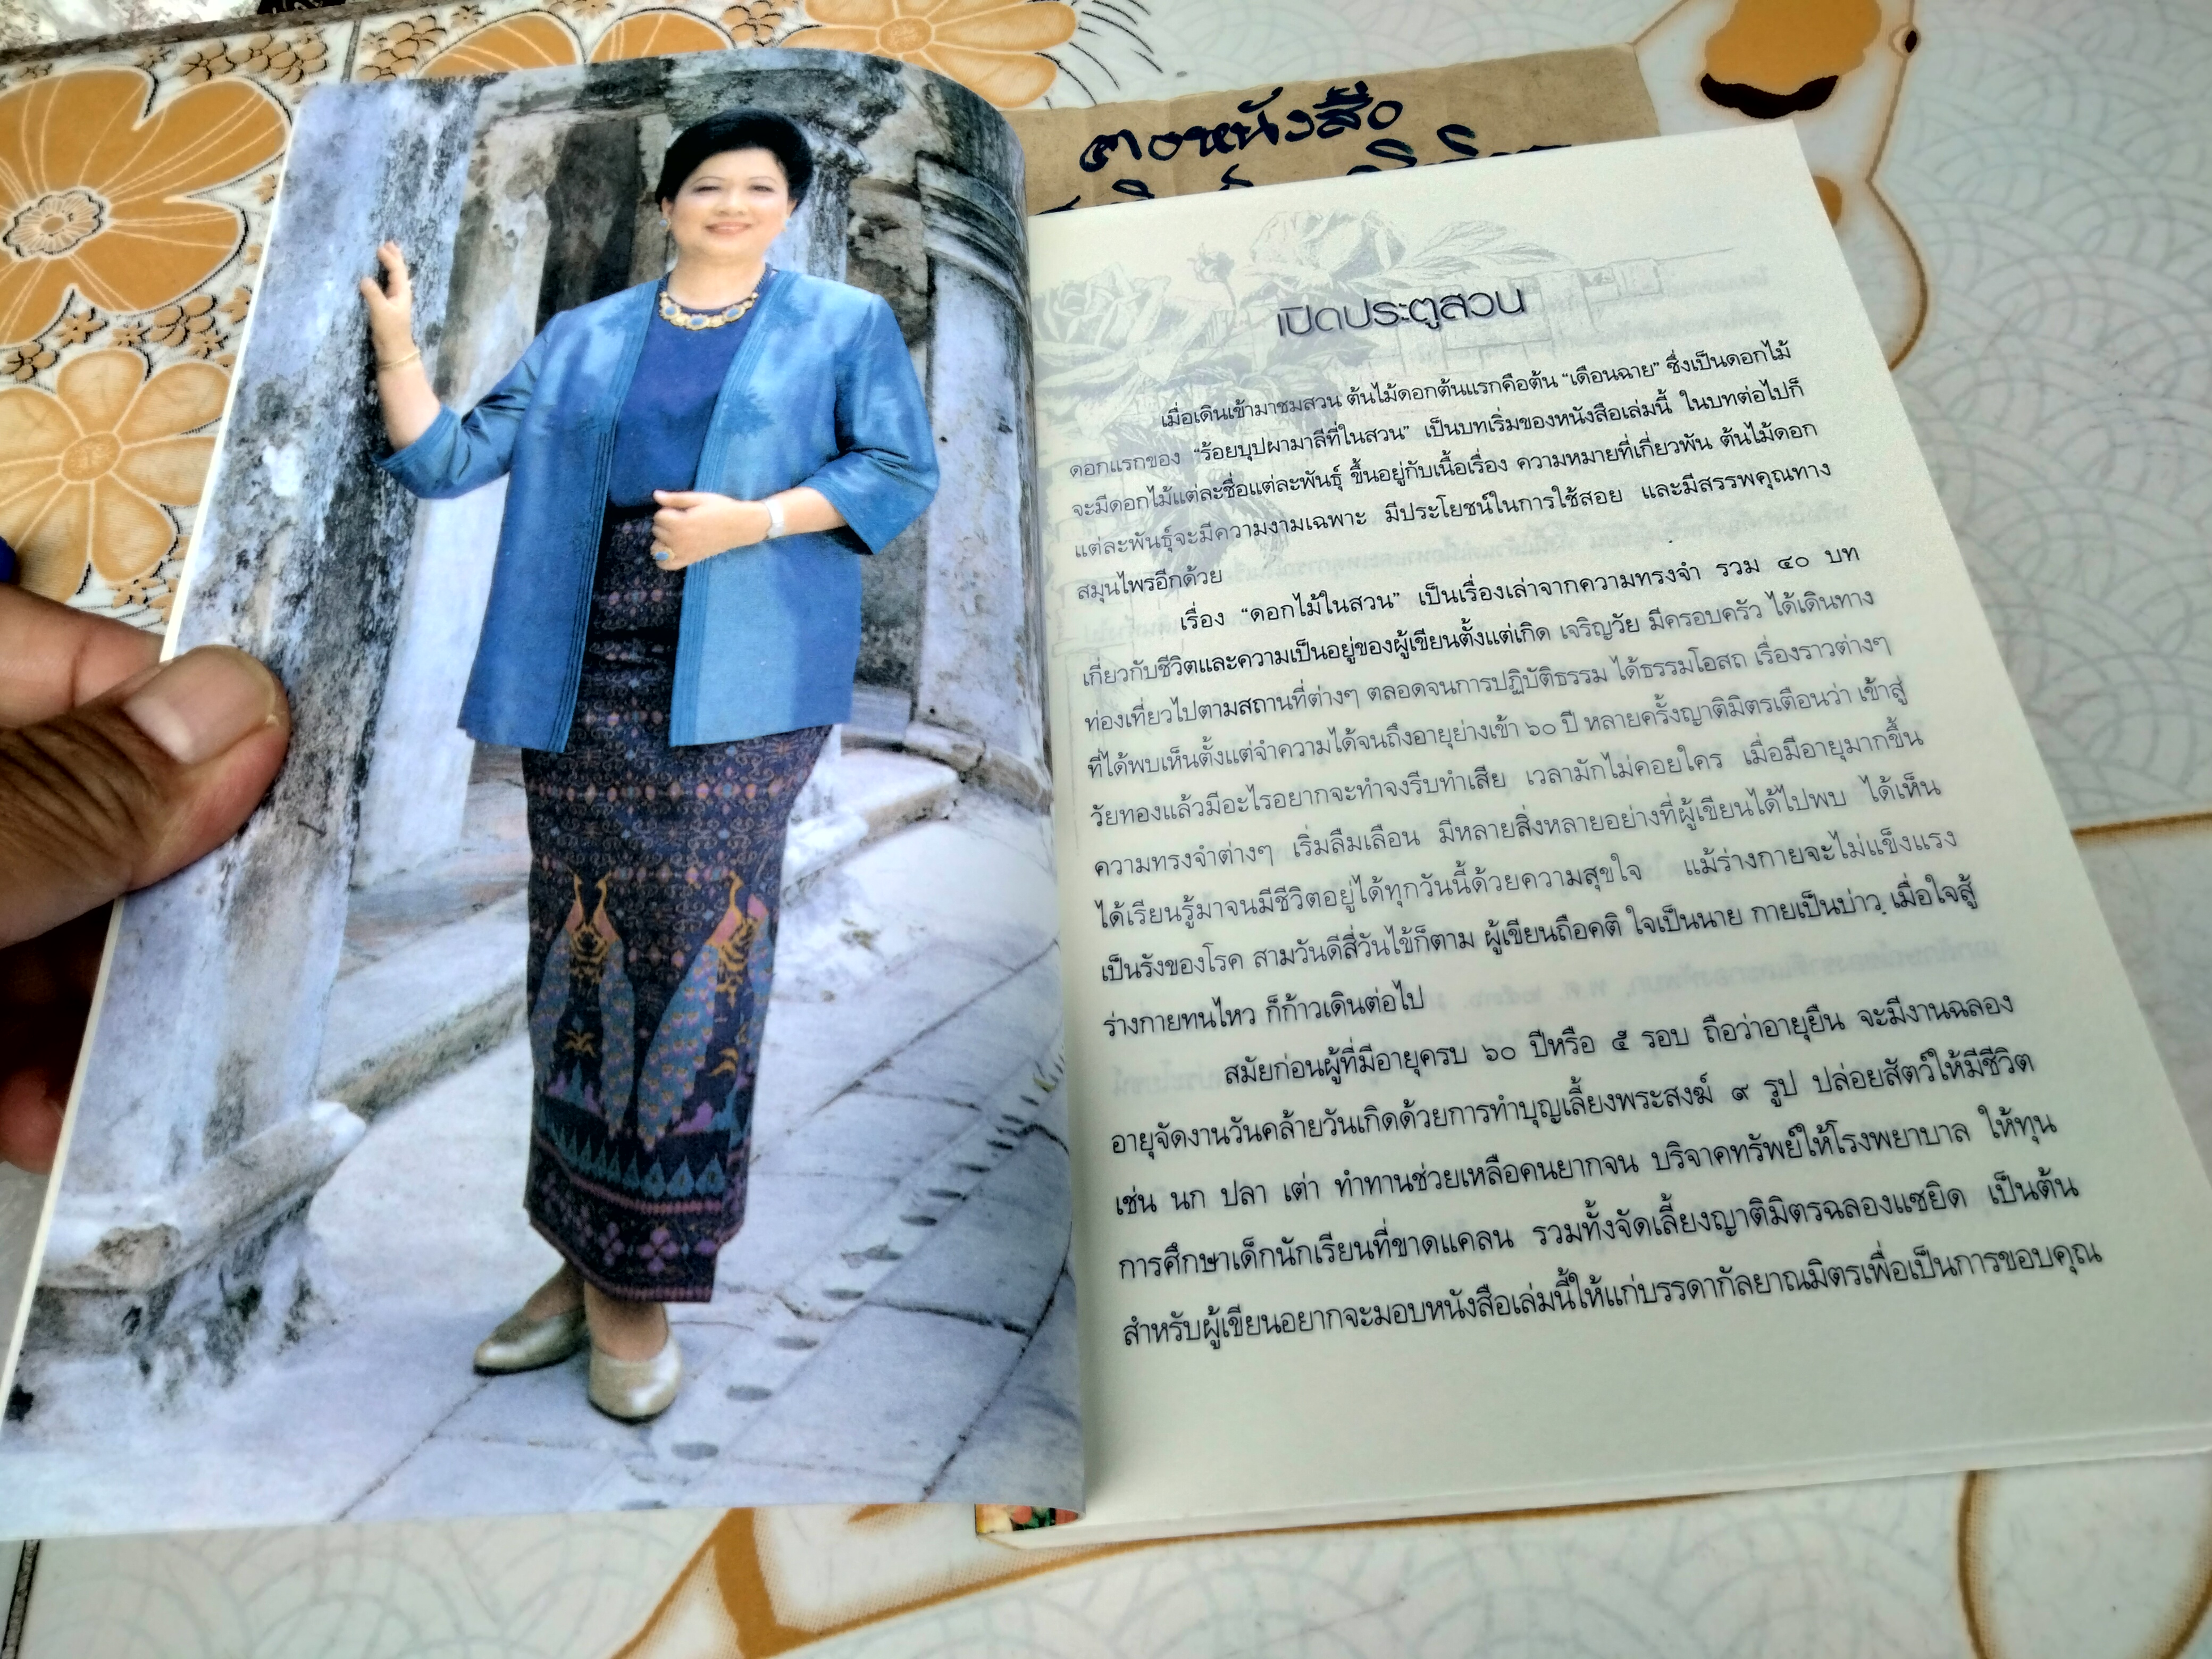 ฅงหนังสือ
เปิดประตูสวน
เมื่อเดินเข้ามาชมสวน ต้นไม้ดอกต้นแรกคือต้น “เดือนฉาย” ซึ่งเป็นดอกไม้
ดอกแรกของ “ร้อยบุปผามาลีที่ในสวน” เป็นบทเริ่มของหนังสือเล่มนี้ ในบทต่อไปก็
จะมีดอกไม้แต่ละชื่อแต่ละพันธุ์ ขึ้นอยู่กับเนื้อเรื่อง ความหมายที่เกี่ยวพัน ต้นไม้ดอก
แต่ละพันธุ์จะมีความงามเฉพาะ มีประโยชน์ในการใช้สอย และมีสรรพคุณทาง
สมุนไพรอีกด้วย
เรื่อง “ดอกไม้ในสวน” เป็นเรื่องเล่าจากความทรงจำ รวม ๔๐ บท
เกี่ยวกับชีวิตและความเป็นอยู่ของผู้เขียนตั้งแต่เกิด เจริญวัย มีครอบครัว ได้เดินทาง
ท่องเที่ยวไปตามสถานที่ต่างๆ ตลอดจนการปฏิบัติธรรม ได้ธรรมโอสถ เรื่องราวต่างๆ
ที่ได้พบเห็นตั้งแต่จำความได้จนถึงอายุย่างเข้า ๖๐ ปี หลายครั้งญาติมิตรเตือนว่า เข้าสู่
วัยทองแล้วมีอะไรอยากจะทำจงรีบทำเสีย เวลามักไม่คอยใคร เมื่อมีอายุมากขึ้น
ความทรงจำต่างๆ เริ่มลืมเลือน มีหลายสิ่งหลายอย่างที่ผู้เขียนได้ไปพบ ได้เห็น
ได้เรียนรู้มาจนมีชีวิตอยู่ได้ทุกวันนี้ด้วยความสุขใจ แม้ร่างกายจะไม่แข็งแรง
เป็นรังของโรค สามวันดีสี่วันไข้ก็ตาม ผู้เขียนถือคติ ใจเป็นนาย กายเป็นบ่าว เมื่อใจสู้
ร่างกายทนไหว ก็ก้าวเดินต่อไป
สมัยก่อนผู้ที่มีอายุครบ ๖๐ ปีหรือ ๕ รอบ ถือว่าอายุยืน จะมีงานฉลอง
อายุจัดงานวันคล้ายวันเกิดด้วยการทำบุญเลี้ยงพระสงฆ์ ๙ รูป ปล่อยสัตว์ให้มีชีวิต
เช่น นก ปลา เต่า ทำทานช่วยเหลือคนยากจน บริจาคทรัพย์ให้โรงพยาบาล ให้ทุน
การศึกษาเด็กนักเรียนที่ขาดแคลน รวมทั้งจัดเลี้ยงญาติมิตรฉลองแซยิด เป็นต้น
สำหรับผู้เขียนอยากจะมอบหนังสือเล่มนี้ให้แก่บรรดากัลยาณมิตรเพื่อเป็นการขอบคุณ